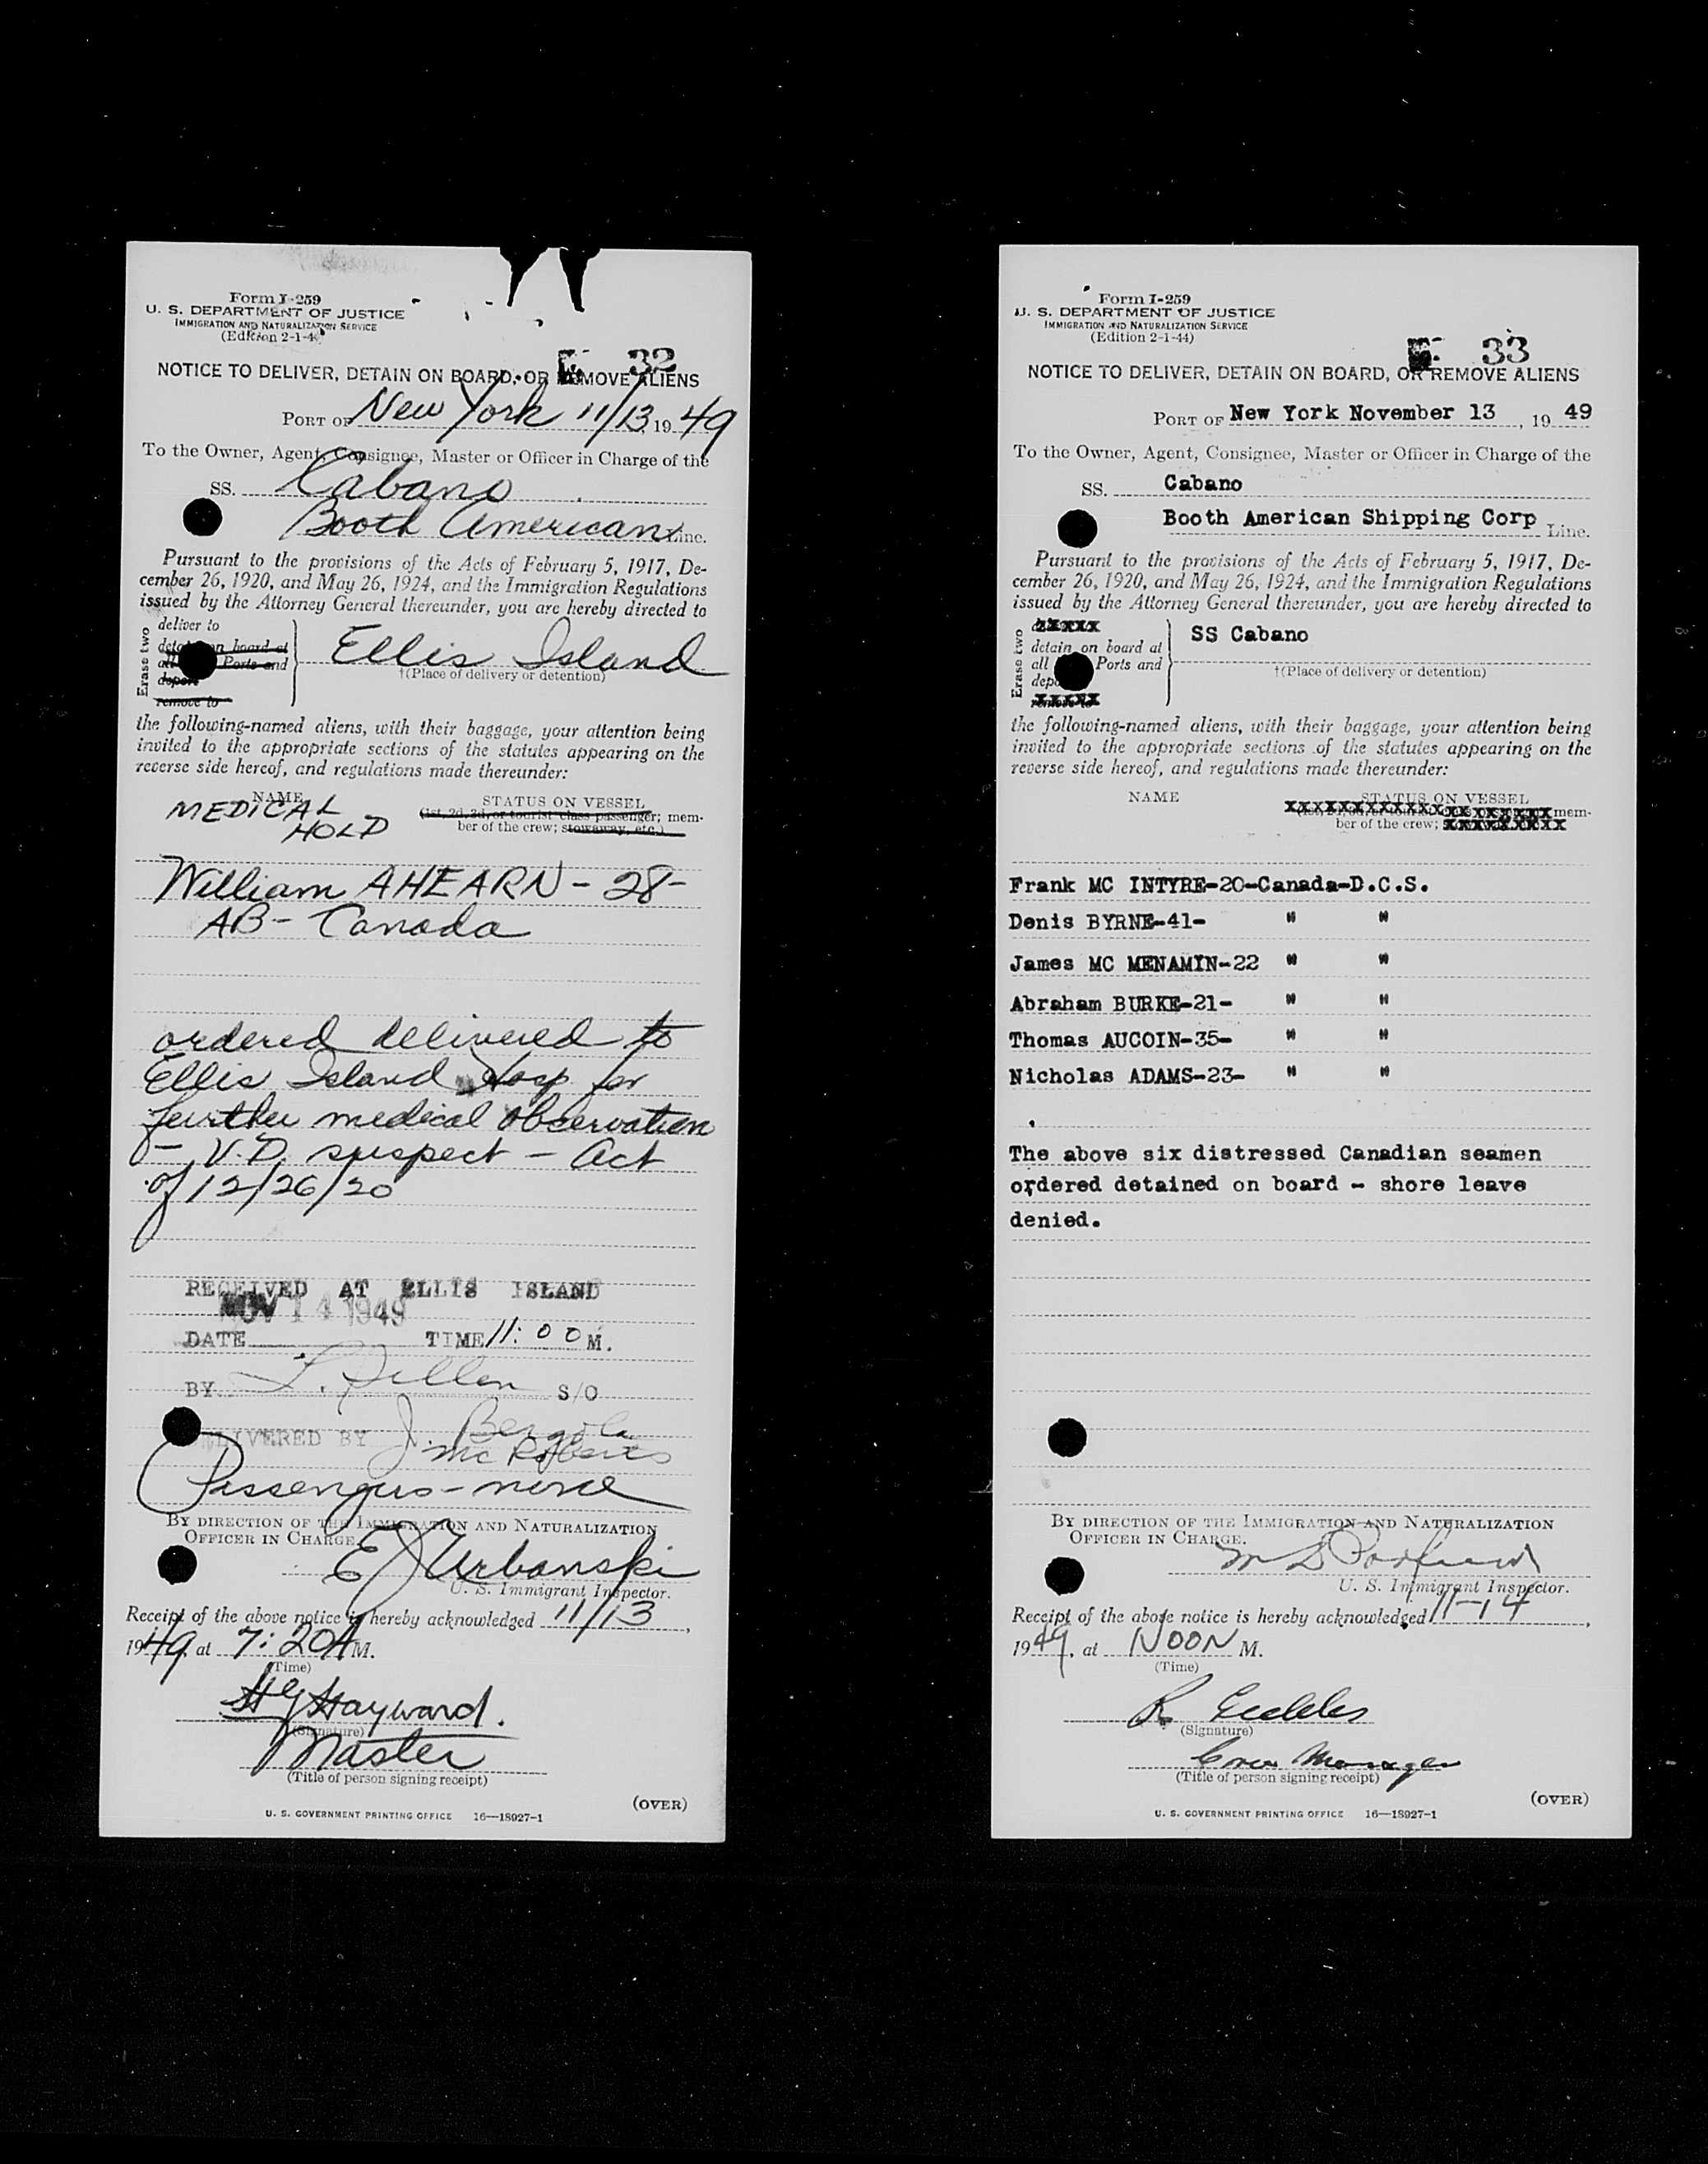 Form I-259
U. S. DEPARTMENT OF JUSTICE
IMMIGRATION AND NATURALIZATION SERVICE
(Edition 2-1-44)
32
NOTICE TO DELIVER, DETAIN ON BOARD, OR REMOVE ALIENS
PORT OF New York 11/13, 1949
To the Owner, Agent, Consignee, Master or Officer in Charge of the
SS. Cabano
Booth American Line.
Pursuant to the provisions of the Acts of February 5, 1917, De-
cember 26, 1920, and May 26, 1924, and the Immigration Regulations
issued by the Attorney General thereunder, you are hereby directed to
Erase two
deliver to
detain on board at
all Ports and
deport
remove to
Ellis Island
†(Place of delivery or detention)
the following-named aliens, with their baggage, your attention being
invited to the appropriate sections of the statutes appearing on the
reverse side hereof, and regulations made thereunder:
NAME
STATUS ON VESSEL
(1st, 2d, 3d, or tourist class passenger; mem-
ber of the crew; stowaway, etc.)
MEDICAL
HOLD
William AHEARN - 28-
AB - Canada
ordered delivered to
Ellis Island Hosp for
further medical observation
- V.D. suspect - Act
of 12/26/20
RECEIVED AT ELLIS ISLAND
NOV 14 1949
DATE TIME 11:00 M.
BY S/O
DELIVERED BY J. Bergola
Mc Roberts
Passengers - none
BY DIRECTION OF THE IMMIGRATION AND NATURALIZATION
OFFICER IN CHARGE.
EJ Urbanski
U. S. Immigrant Inspector.
Receipt of the above notice is hereby acknowledged 11/13,
1949, at 7:20 A M.
(Time)
HG Hayward.
(Signature)
Master
(Title of person signing receipt)
(OVER)
U. S. GOVERNMENT PRINTING OFFICE 16—18927-1
Form I-259
U. S. DEPARTMENT OF JUSTICE
IMMIGRATION AND NATURALIZATION SERVICE
(Edition 2-1-44)
33
NOTICE TO DELIVER, DETAIN ON BOARD, OR REMOVE ALIENS
PORT OF New York November 13, 19 49
To the Owner, Agent, Consignee, Master or Officer in Charge of the
SS. Cabano
Booth American Shipping Corp Line.
Pursuant to the provisions of the Acts of February 5, 1917, De-
cember 26, 1920, and May 26, 1924, and the Immigration Regulations
issued by the Attorney General thereunder, you are hereby directed to
Erase two
xxxxx
detain on board at
all Ports and
deport
xxxxx
SS Cabano
†(Place of delivery or detention)
the following-named aliens, with their baggage, your attention being
invited to the appropriate sections of the statutes appearing on the
reverse side hereof, and regulations made thereunder:
NAME
STATUS ON VESSEL
mem-
ber of the crew;
Frank MC INTYRE-20-Canada-D.C.S.
Denis BYRNE-41- " "
James MC MENAMIN-22 " "
Abraham BURKE-21- " "
Thomas AUCOIN-35- " "
Nicholas ADAMS-23- " "
The above six distressed Canadian seamen
ordered detained on board - shore leave
denied.
BY DIRECTION OF THE IMMIGRATION AND NATURALIZATION
OFFICER IN CHARGE.
U. S. Immigrant Inspector.
Receipt of the above notice is hereby acknowledged 11-14,
1949, at NOON M.
(Time)
R Eccles
(Signature)
Crew Manager
(Title of person signing receipt)
(OVER)
U. S. GOVERNMENT PRINTING OFFICE 16—18927-1